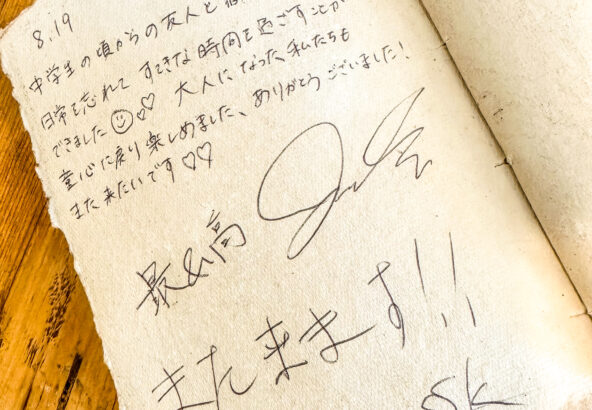 8.19
中学生の頃からの友人と
日常を忘れて すてきな時間を過ごすことが
できました 大人になった私たちも
童心に戻り楽しめました、ありがとうございました!
また来たいです♡♡
最&高
また来ます!!
SK